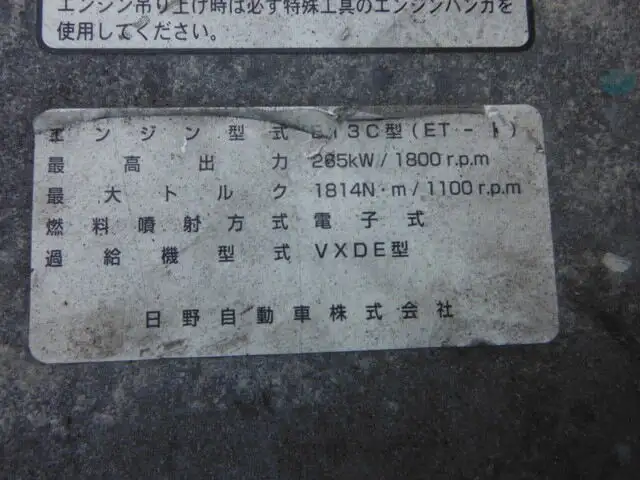 エンジン吊り上げ時は必ず特殊工具のエンジンハンガを
使用してください。
エンジン型式 E13C型(ET-)
最高出力 265kW/1800r.p.m
最大トルク 1814N・m/1100r.p.m
燃料噴射方式 電子式
過給機型式 VXDE型
日野自動車株式会社